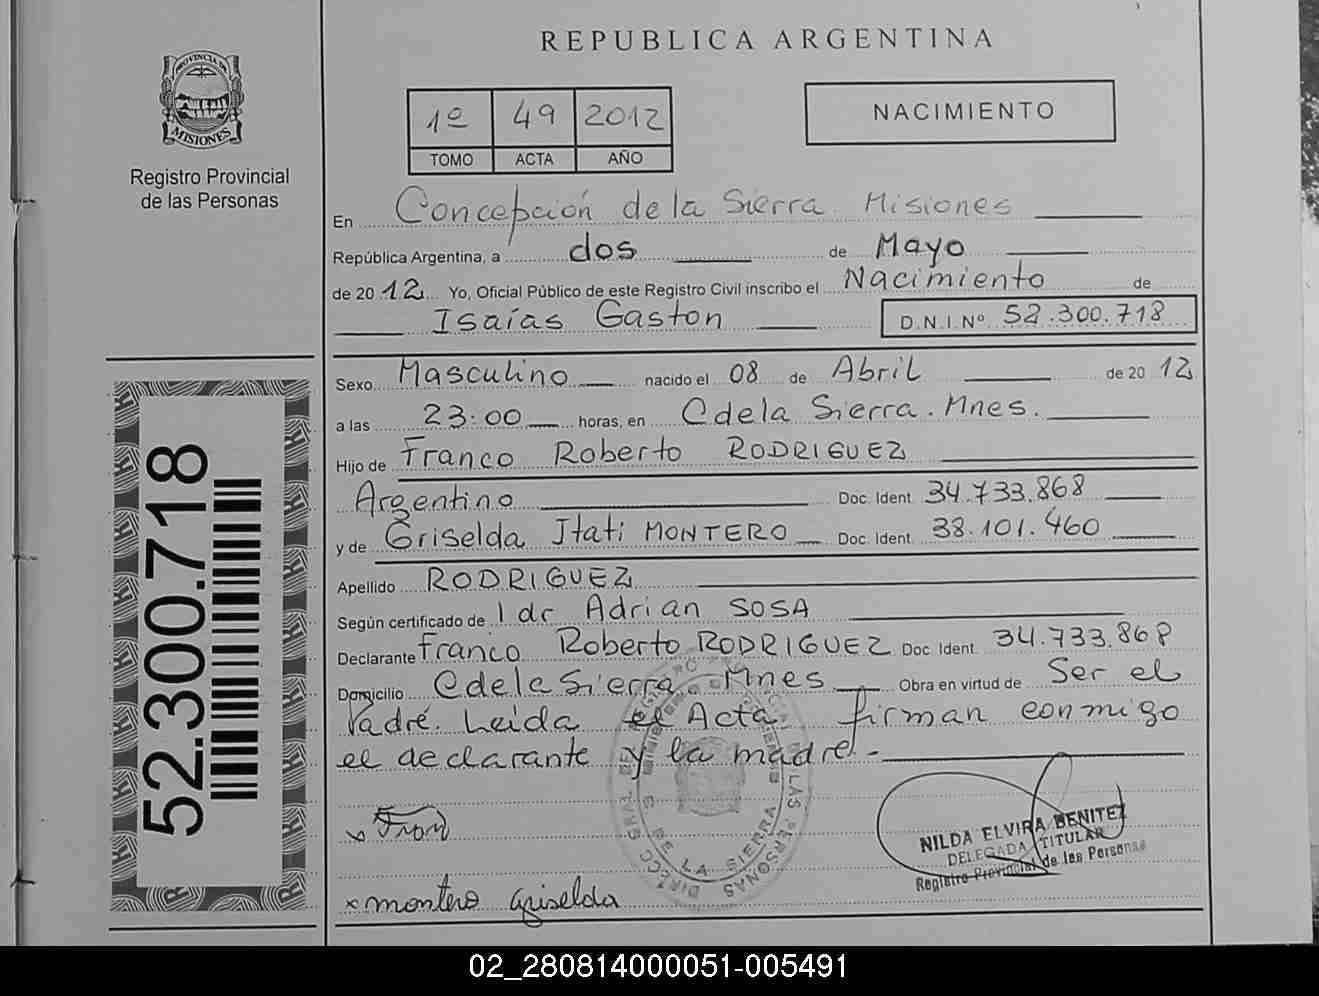 REPUBLICA ARGENTINA
PROVINCIA DE
MISIONES
Registro Provincial
de las Personas
1º 49 2012
TOMO ACTA AÑO
NACIMIENTO
En Concepción de la Sierra Misiones
República Argentina, a dos de Mayo
de 2012 Yo, Oficial Público de este Registro Civil inscribo el Nacimiento de
Isaías Gaston D.N.I.Nº 52.300.718
Sexo Masculino nacido el 08 de Abril de 2012
a las 23:00 horas, en C de la Sierra. Mnes.
Hijo de Franco Roberto RODRIGUEZ
Argentino Doc. Ident. 34.733.868
y de Griselda Itati MONTERO Doc. Ident. 38.101.460
Apellido RODRIGUEZ
Según certificado de l dr Adrian SOSA
Declarante Franco Roberto RODRIGUEZ Doc. Ident. 34.733.868
Domicilio C de la Sierra. Mnes Obra en virtud de Ser el
Padre. Leida el Acta, firman conmigo
el declarante y la madre.-
x Fran
x montero Griselda
NILDA ELVIRA BENITEZ
DELEGADA TITULAR
Registro Provincial de las Personas
LAS PERSONAS
DE LA SIERRA
52.300.718
02_280814000051-005491